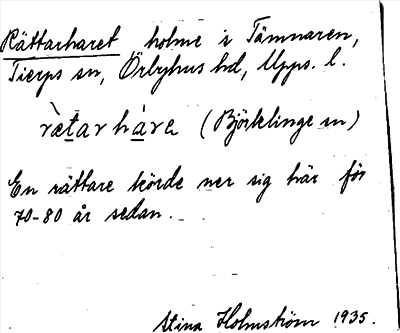 Rättarharet holme i Tämnaren,
Tierps sn, Örbyhus hd, Upps. l.
rætarhàre (Björklinge sn)
En rättare körde ner sig här för
70-80 år sedan.
Stina Holmström 1935.